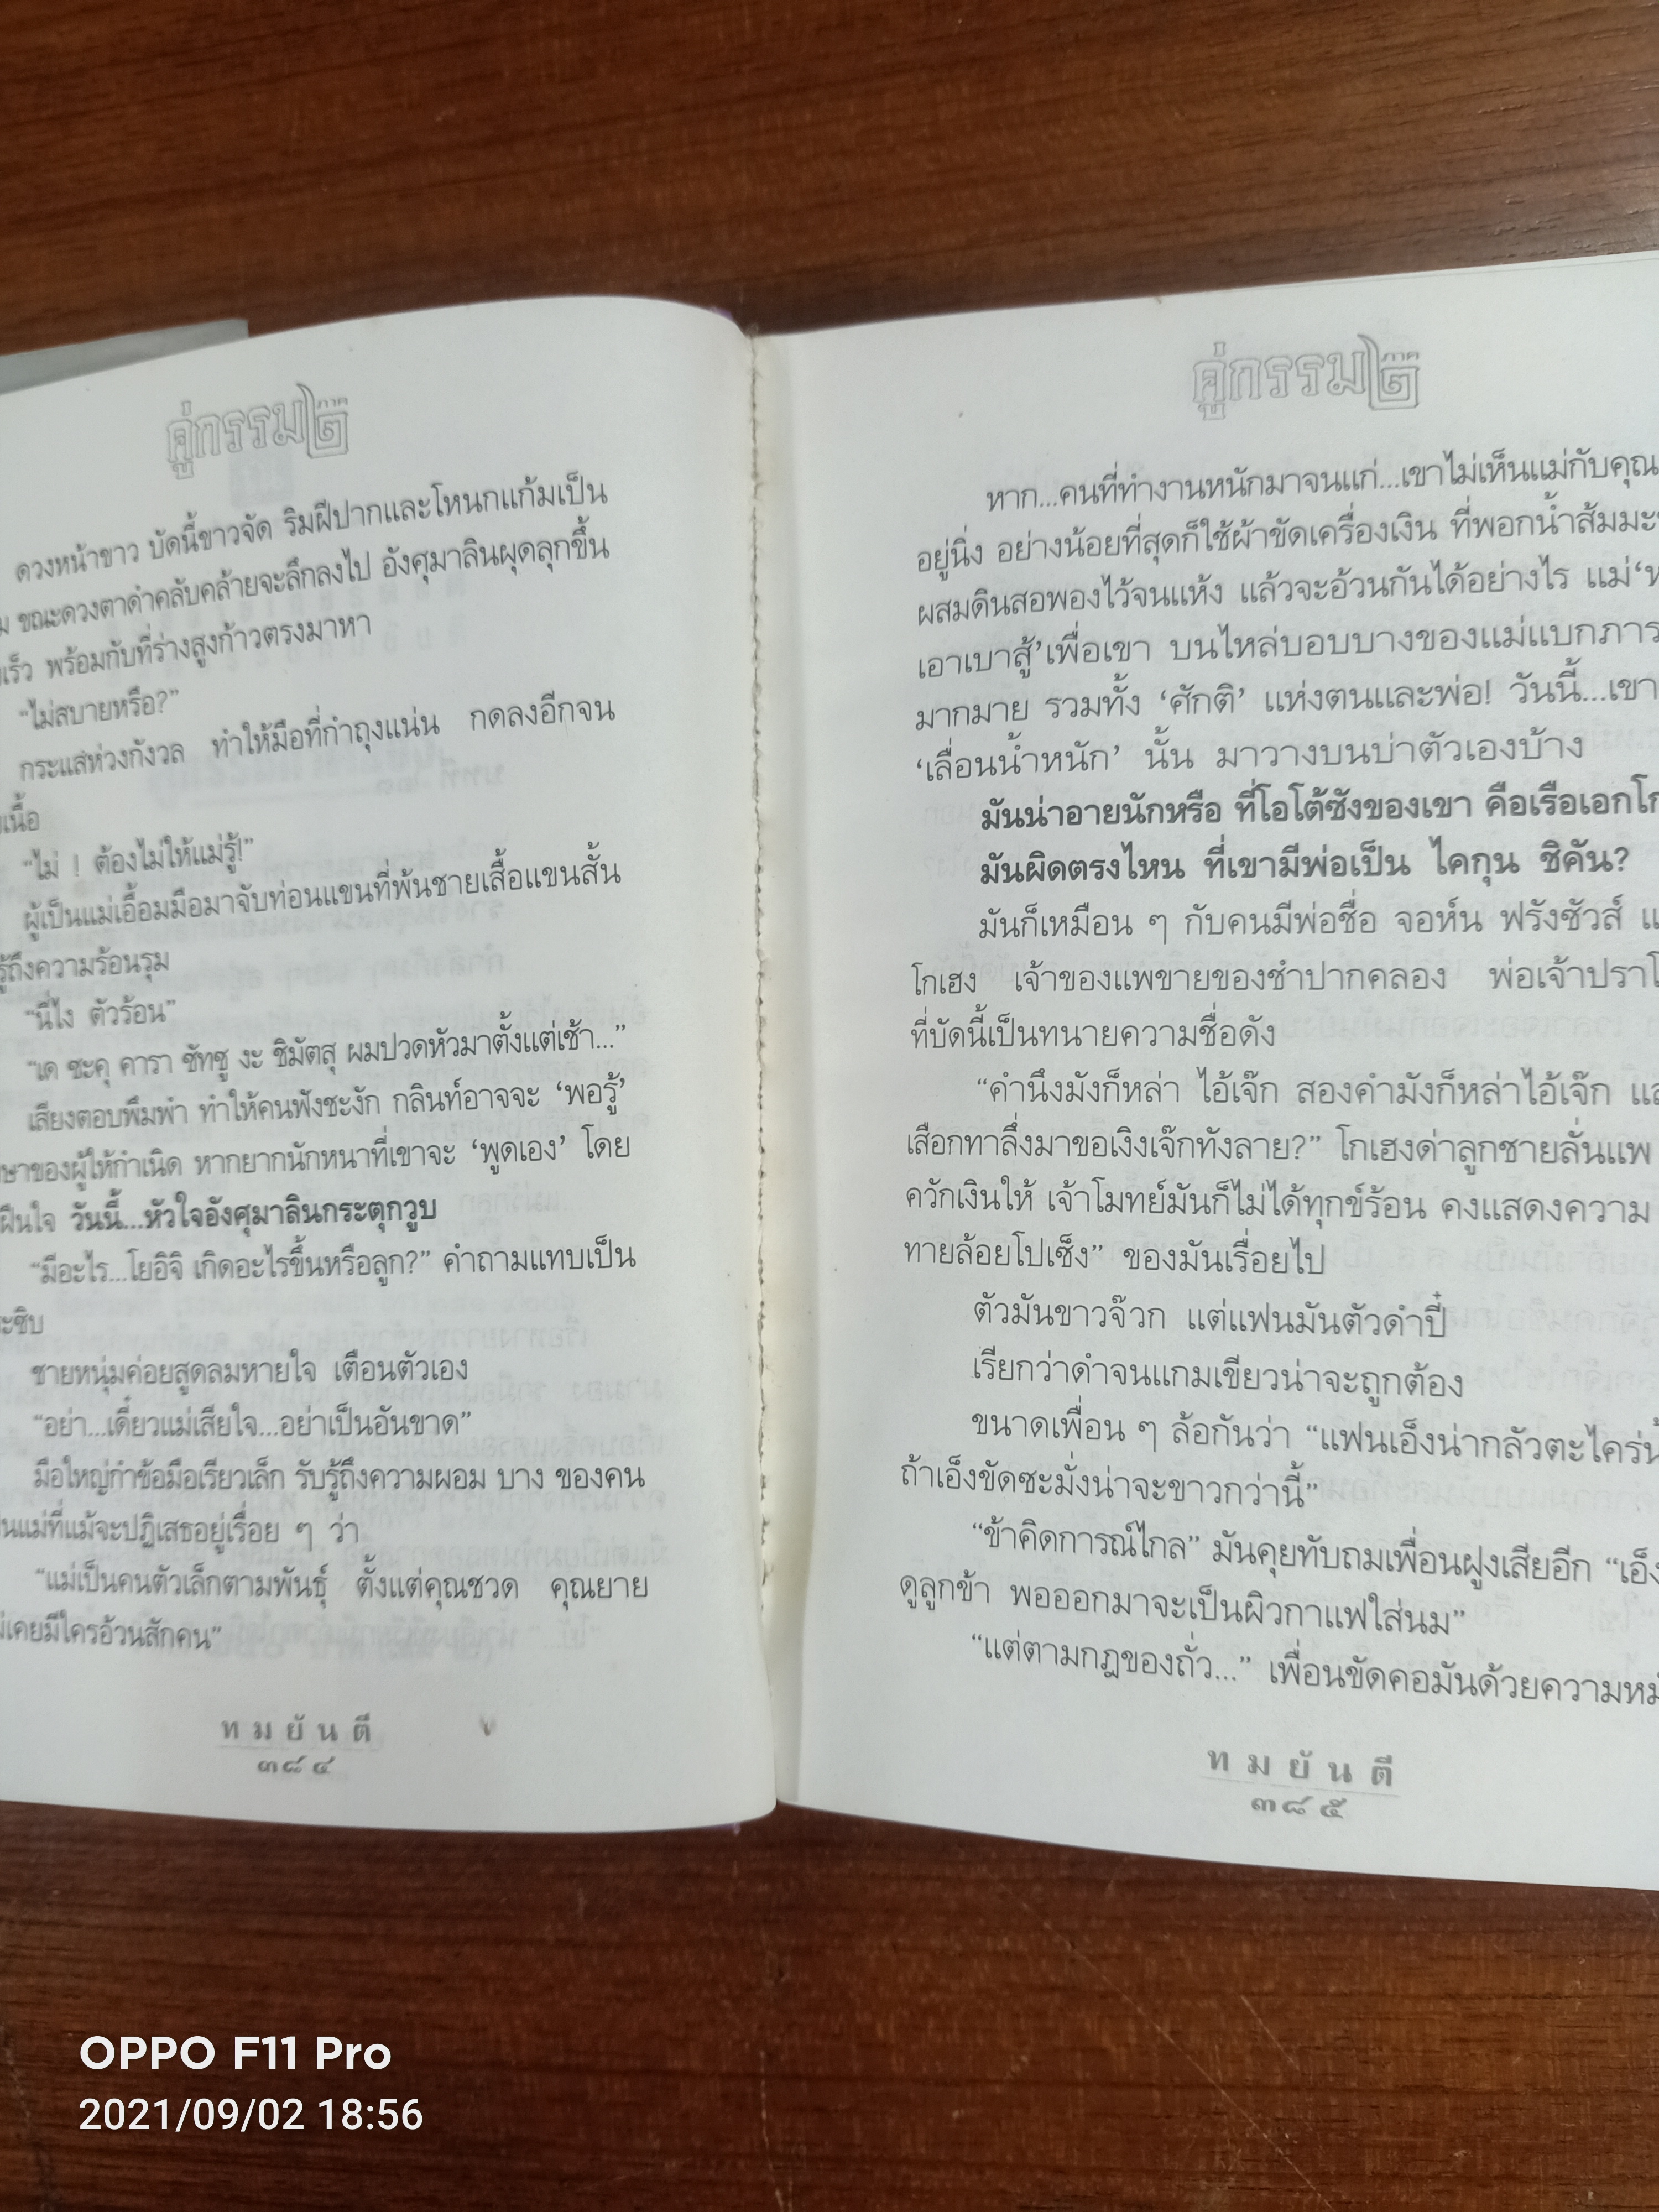 คู่กรรม ๒ ภาค
ดวงหน้าขาว บัดนี้ขาวจัด ริมฝีปากและโหนกแก้มเป็น
ขณะดวงตาดำคลับคล้ายจะลึกลงไป อังศุมาลินผุดลุกขึ้น
เร็ว พร้อมกับที่ร่างสูงก้าวตรงมาหา
“ไม่สบายหรือ?”
กระแสห่วงกังวล ทำให้มือที่กำถุงแน่น กดลงอีกจน
เนื้อ
“ไม่ ! ต้องไม่ให้แม่รู้!”
ผู้เป็นแม่เอื้อมมือมาจับท่อนแขนที่พ้นชายเสื้อแขนสั้น
รู้ถึงความร้อนรุม
“นี่ไง ตัวร้อน”
“เด ชะคุ คารา ซัทชู งะ ชิมัตสุ ผมปวดหัวมาตั้งแต่เช้า...”
เสียงตอบพึมพำ ทำให้คนฟังชะงัก กลินท์อาจจะ ‘พอรู้’
ษาของผู้ให้กำเนิด หากยากนักหนาที่เขาจะ ‘พูดเอง’ โดย
ฝืนใจ วันนี้...หัวใจอังศุมาลินกระตุกวูบ
“มีอะไร...โยอิจิ เกิดอะไรขึ้นหรือลูก?” คำถามแทบเป็น
ะซิบ
ชายหนุ่มค่อยสูดลมหายใจ เตือนตัวเอง
“อย่า...เดี๋ยวแม่เสียใจ...อย่าเป็นอันขาด”
มือใหญ่กำข้อมือเรียวเล็ก รับรู้ถึงความผอม บาง ของคน
นแม่ที่แม้จะปฏิเสธอยู่เรื่อย ๆ ว่า
“แม่เป็นคนตัวเล็กตามพันธุ์ ตั้งแต่คุณชวด คุณยาย
เคยมีใครอ้วนสักคน”
ทมยันตี
๓๘๔
คู่กรรม ๒ ภาค
หาก...คนที่ทำงานหนักมาจนแก่...เขาไม่เห็นแม่กับคุณ
อยู่นิ่ง อย่างน้อยที่สุดก็ใช้ผ้าขัดเครื่องเงิน ที่พอกน้ำส้มมะ
ผสมดินสอพองไว้จนแห้ง แล้วจะอ้วนกันได้อย่างไร แม่‘ห
เอาเบาสู้’เพื่อเขา บนไหล่บอบบางของแม่แบกภาร
มากมาย รวมทั้ง ‘ศักติ’ แห่งตนและพ่อ! วันนี้...เขา
‘เลื่อนน้ำหนัก’ นั้น มาวางบนบ่าตัวเองบ้าง
มันน่าอายนักหรือ ที่โอโต้ซังของเขา คือเรือเอกโก
มันผิดตรงไหน ที่เขามีพ่อเป็น ไคกุน ชิคัน?
มันก็เหมือน ๆ กับคนมีพ่อชื่อ จอห์น ฟรังซัวส์ แ
โกเฮง เจ้าของแพขายของชำปากคลอง พ่อเจ้าปราโ
ที่บัดนี้เป็นทนายความชื่อดัง
“คำนึงมังก็หล่า ไอ้เจ๊ก สองคำมังก็หล่าไอ้เจ๊ก แล
เสือกทาลึ่งมาขอเงิงเจ๊กทังลาย?” โกเฮงด่าลูกชายลั่นแพ
ควักเงินให้ เจ้าโมทย์มันก็ไม่ได้ทุกข์ร้อน คงแสดงความ
ทายล้อยโปเซ็ง” ของมันเรื่อยไป
ตัวมันขาวจ๊วก แต่แฟนมันตัวดำปี๋
เรียกว่าดำจนแกมเขียวน่าจะถูกต้อง
ขนาดเพื่อน ๆ ล้อกันว่า “แฟนเอ็งน่ากลัวตะไคร่น้
ถ้าเอ็งขัดซะมั่งน่าจะขาวกว่านี้”
“ข้าคิดการณ์ไกล” มันคุยทับถมเพื่อนฝูงเสียอีก “เอ็ง
ดูลูกข้า พอออกมาจะเป็นผิวกาแฟใส่นม”
“แต่ตามกฎของถั่ว...” เพื่อนขัดคอมันด้วยความหมั
ทมยันตี
๓๘๕
OPPO F11 Pro
2021/09/02 18:56